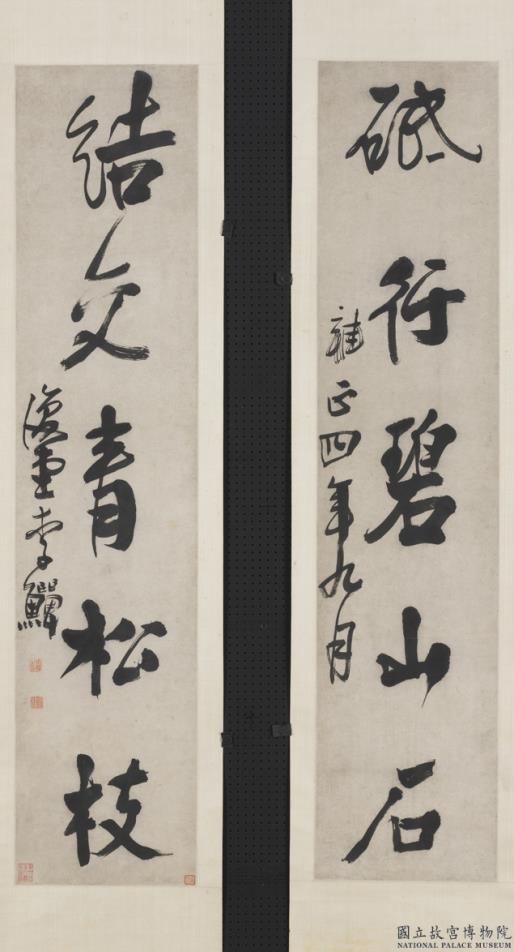 砥行碧山石
雍正四年九月
結交青松枝
復堂李鱓
國立故宮博物院
NATIONAL PALACE MUSEUM